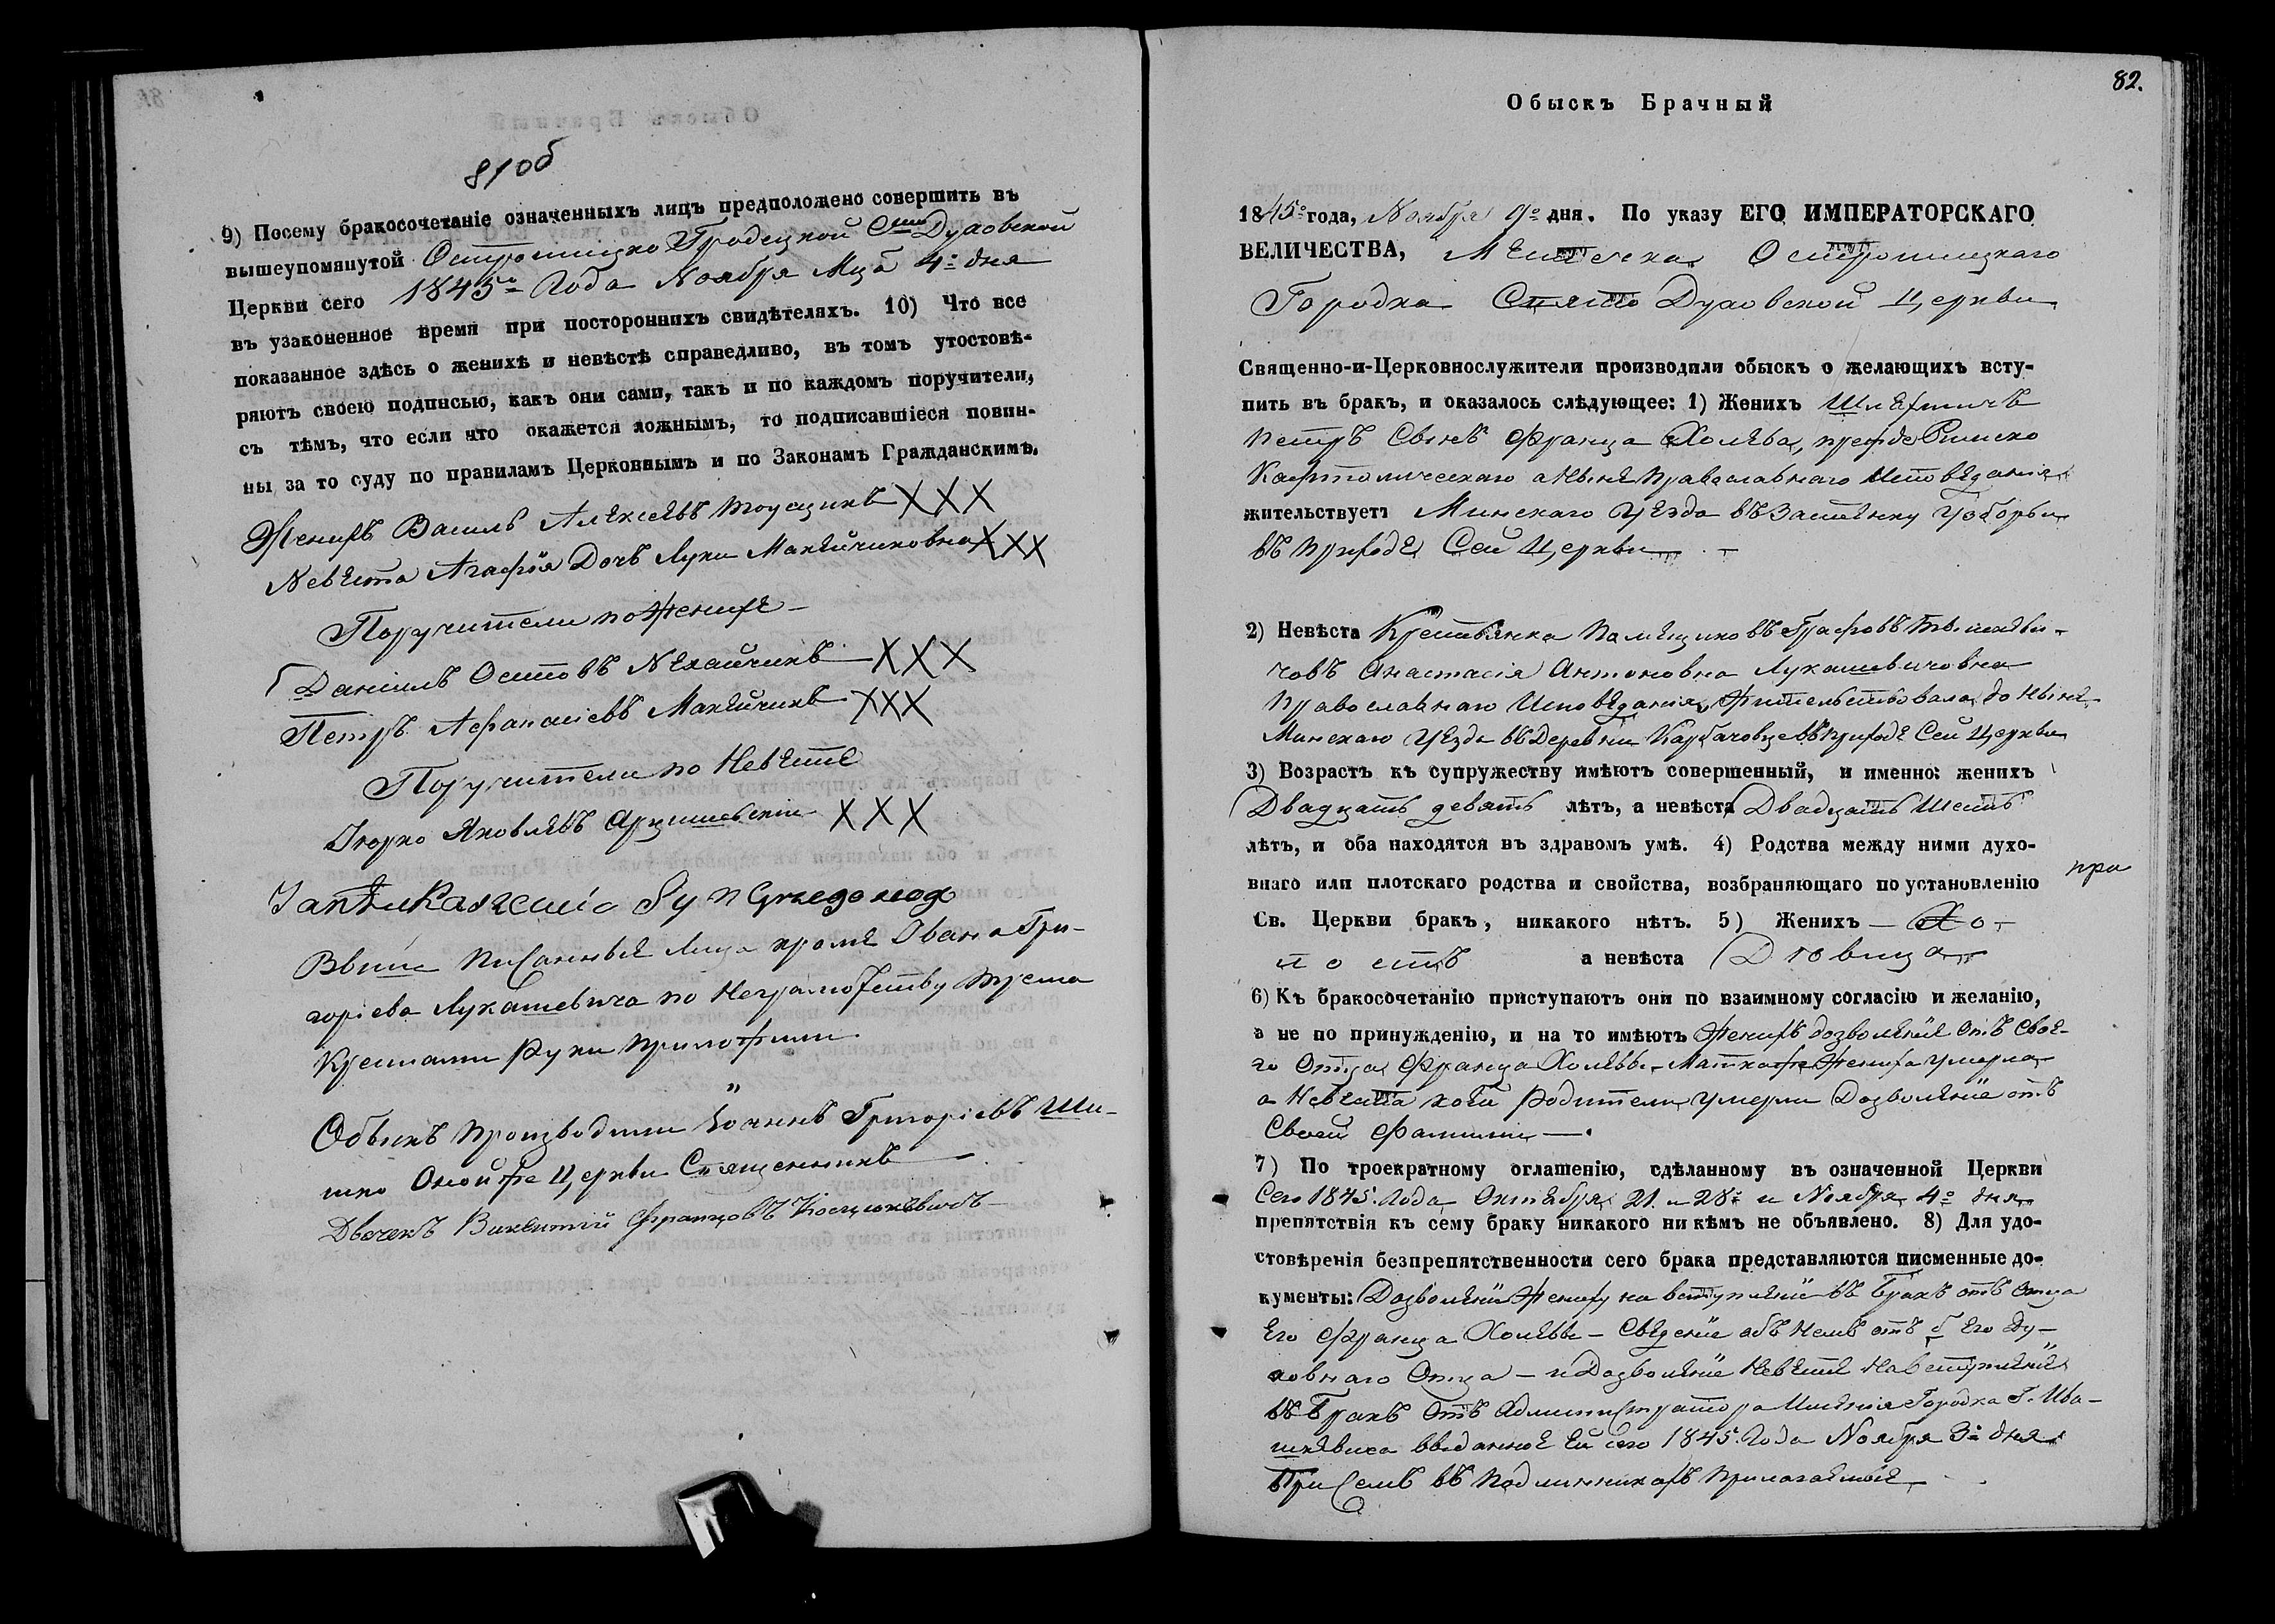 81об
9) Посему бракосочетаніе означенныхъ лицъ предположено совершить въ
вышеупомянутой Острошицко Гродецкой Сто Духовской
Церкви сего 1845го Года Ноября Мца 4о дня
въ узаконенное время при постороннихъ свидѣтеляхъ. 10) Что все
показанное здѣсь о женихѣ и невѣстѣ справедливо, въ томъ утостовѣ-
ряютъ своею подписью, какъ они сами, такъ и по каждомъ поручители,
съ тѣмъ, что если что окажется ложнымъ, то подписавшіеся повин-
ны за то суду по правиламъ Церковнымъ и по Законамъ Гражданскимъ.
Женихъ Василь Алексѣевъ XXX
Невѣста Агафія Дочь Луки Макейчиковна XXX
Поручители по Женихѣ
Даніилъ Остовъ XXX
Петръ Афанасіевъ Макейчикъ XXX
Поручители по Невѣстѣ
Юрко Яковлевъ Арцишевскій XXX
Выше писанные Лица кромѣ Івана Гри-
горіева Лукашевича по Неграмотству трема
Крестами Руки приложили
Обыскъ производили Іоаннъ Григоріевъ Ши-
шко Оной же Церкви Священникъ
Дьячекъ Викентій Францовъ Косцюкевичъ
82.
Обыскъ Брачный
1845о года, Ноября 9о дня. По указу ЕГО ИМПЕРАТОРСКАГО
ВЕЛИЧЕСТВА, Мѣстечка Острошицкаго
Городка Свято Духовской Церкви
Священно-и-Церковнослужители производили обыскъ о желающихъ всту-
пить въ бракъ, и оказалось слѣдующее: 1) Женихъ Шляхтичъ
Петръ Сынъ Франца Холева, прежде Римско
Кафтолическаго а Нынѣ Православнаго Исповѣданія
жительствуетъ Минскаго Уѣзда въ Застѣнку Узборьи
въ приходѣ Сей Церкви
2) Невѣста Крестьянка Помѣщиковъ Графовъ Тышкеви-
човъ Анастасія Антоновна Лукашевичовна
Православнаго Исповѣданія, Жительствовала до Нынѣ
Минскаго Уѣзда въ Деревни Карбачовце въ приходѣ Сей Церкви
3) Возрастъ къ супружеству имѣютъ совершенный, и именно: женихъ
Двадцать девять лѣтъ, а невѣста Двадцать Шесть
лѣтъ, и оба находятся въ здравомъ умѣ. 4) Родства между ними духо-
внаго или плотскаго родства и свойства, возбраняющаго по установленію
при
Св. Церкви бракъ, никакого нѣтъ. 5) Женихъ Хо-
лостъ а невѣста Дѣвица
6) Къ бракосочетанію приступаютъ они по взаимному согласію и желанію,
а не по принужденію, и на то имѣютъ Женихъ дозволеніе отъ Свое-
го Отца Франца Холевы, Матка же Жениха умерла
а Невѣста коей Родители умерли Дозволеніе отъ
Своей Фамиліи
7) По троекратному оглашенію, сдѣланному въ означенной Церкви
Сего 1845 Года Октября 21. и 28о и Ноября 4о дня
препятствія къ сему браку никакого ни кѣмъ не объявлено. 8) Для удо-
стовѣренія безпрепятственности сего брака представляются писменные до-
кументы: Дозволеніе Жениху на вступленіе въ Бракъ отъ Отца
Его Франца Холевы - Свѣденіе объ Немъ отъ б Его Ду-
ховнаго Отца - и Дозволеніе Невѣстѣ На вступленіе
въ Бракъ Отъ Администратора Имѣнія Городка Г. Ива-
шкевича выданное Ей сего 1845 Года Ноября 3о дня
При Семъ въ Подлинникахъ Прилагаемые